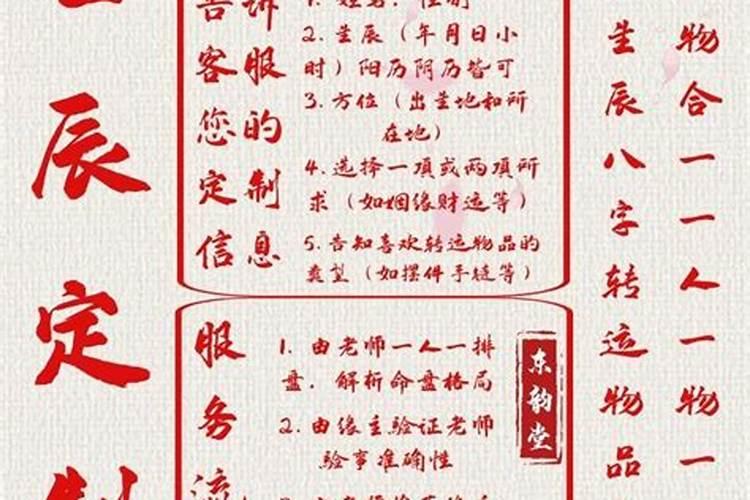 辰定制
告诉
客服
您的
定制
信息
2. 生辰（年月日小
时）阳历阴历皆可
3. 方位（出生地和所
在地）
4. 选择一項或两項所
求（如姻缘财运等）
5. 告知喜欢转运物品的
（如摆件手链等）
服务流
1. 由老师一人一排
盘. 解析命盘格局
2. 由缘主验证老师
验事准确性
东韵堂
物合一一人一物一
生辰八字转运物品